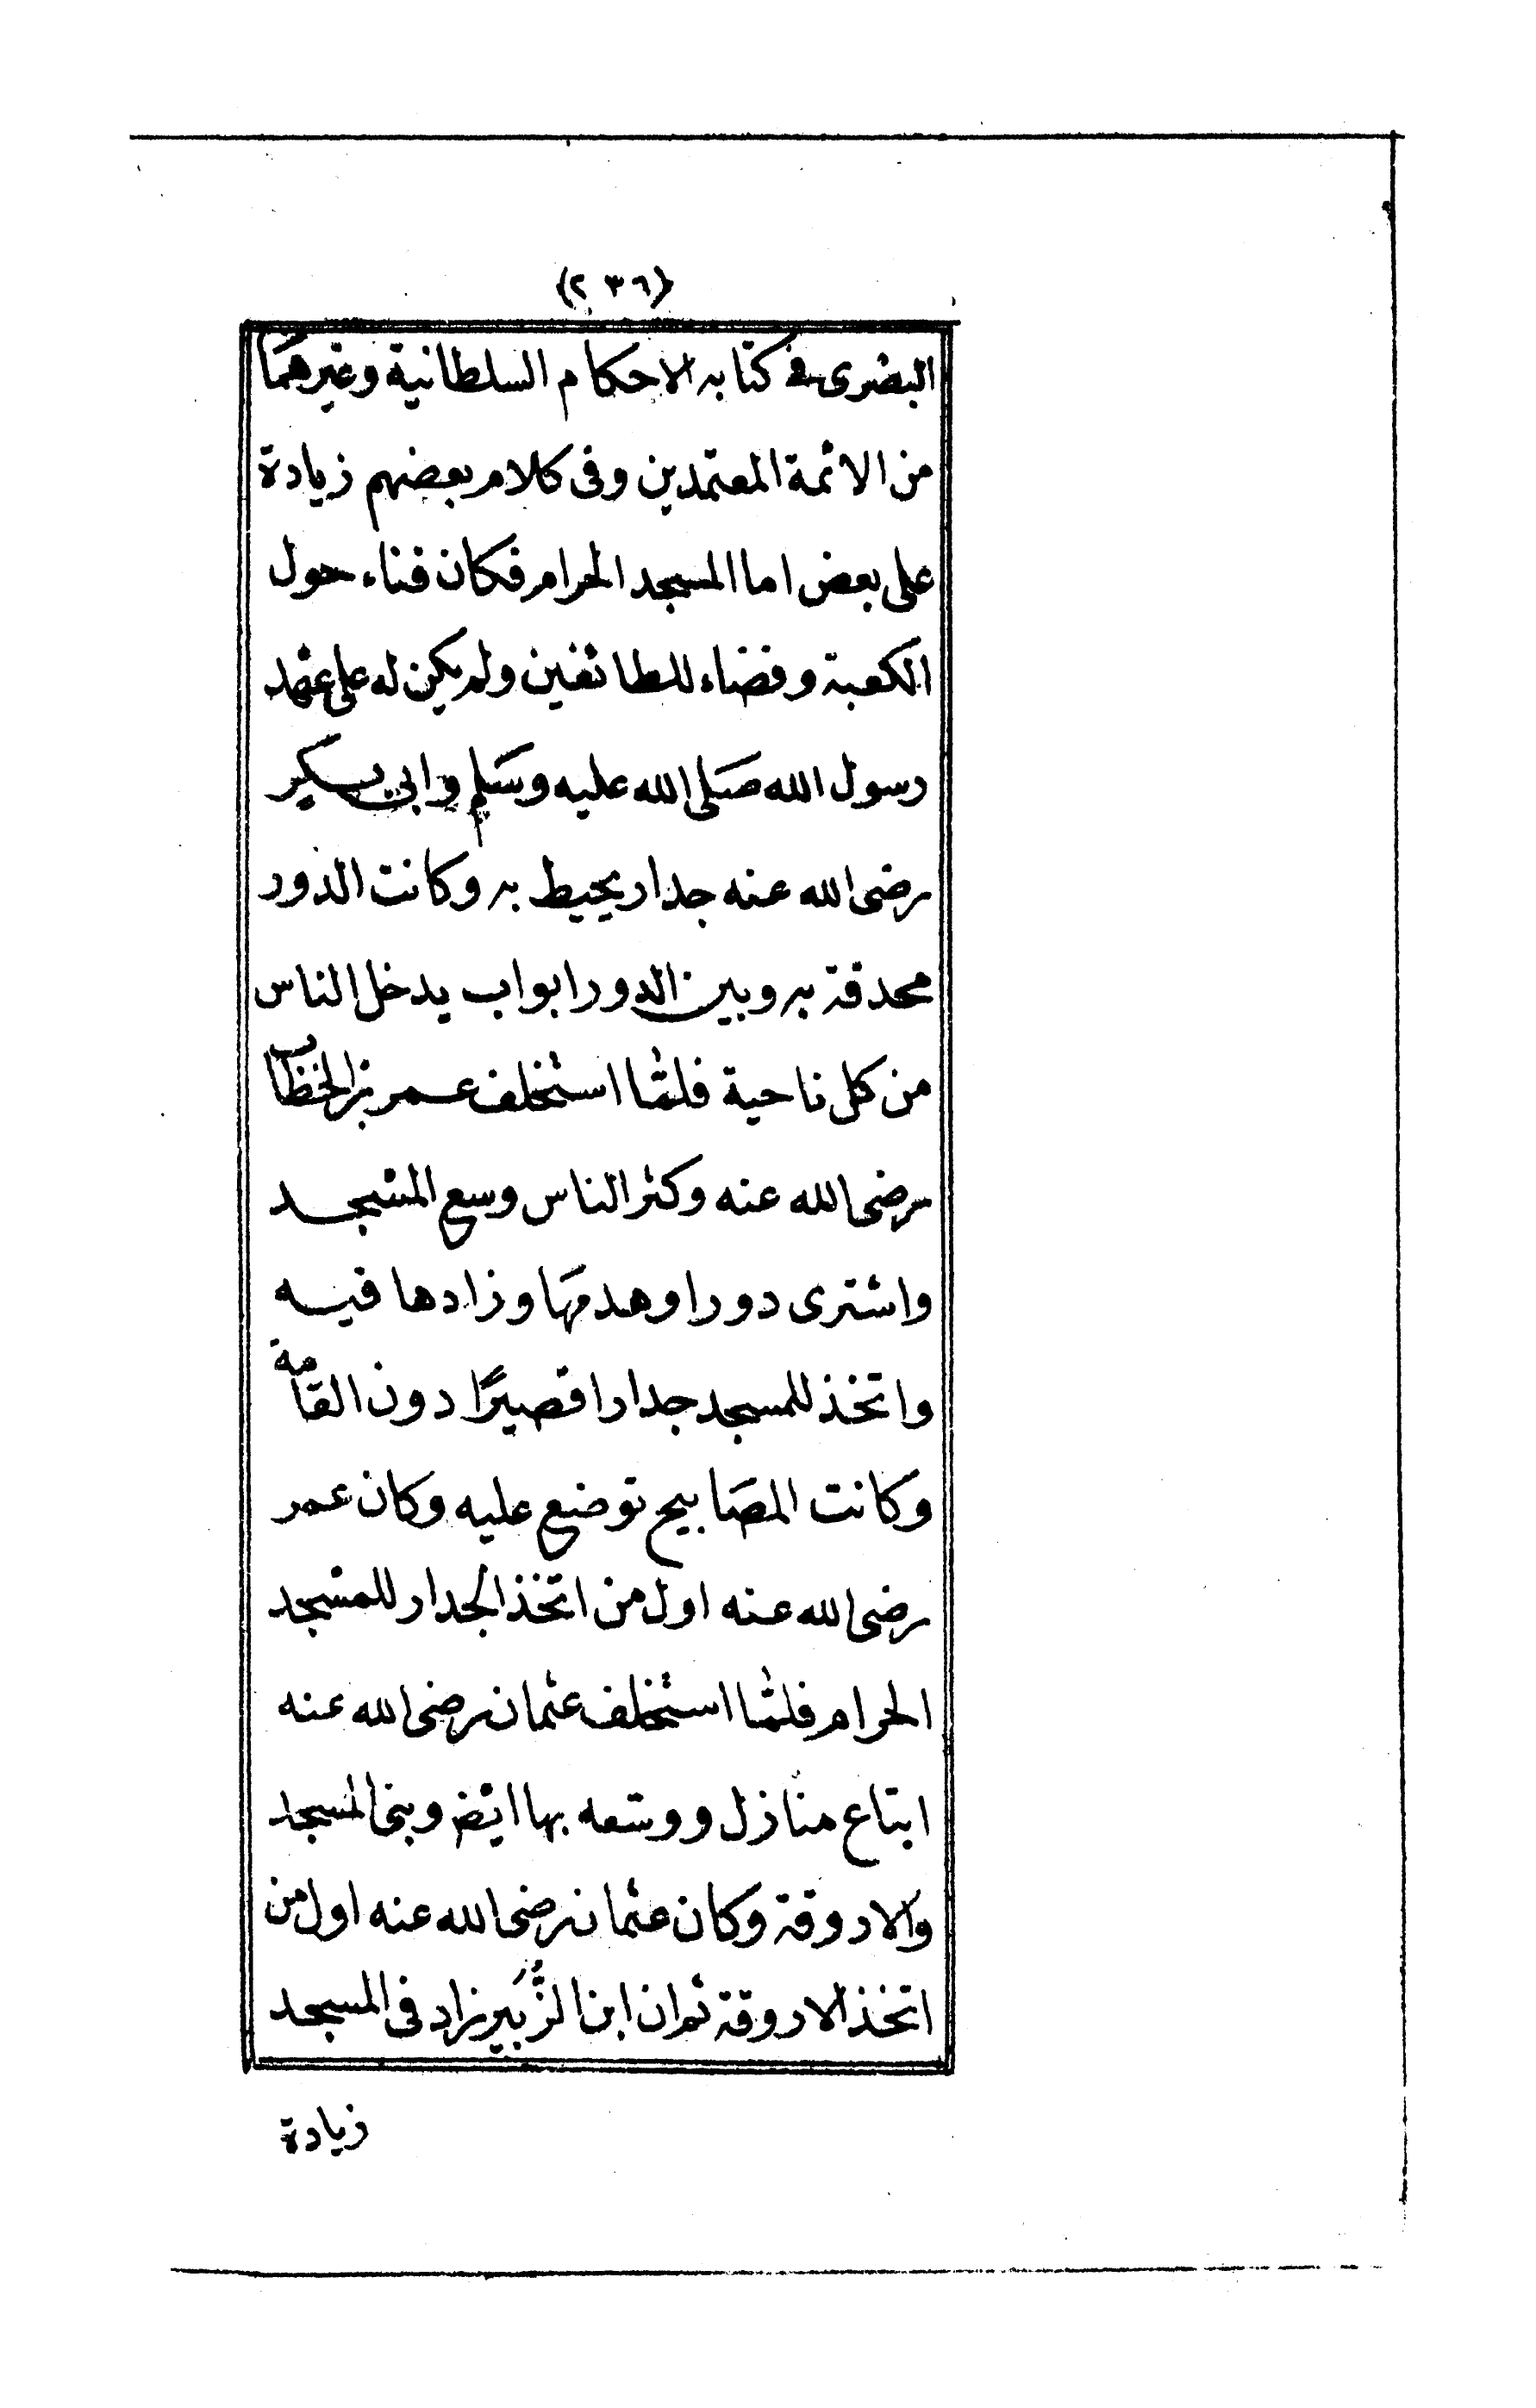 (٢٣٦)
البصرى فى كتابه الاحكام السلطانية وغيرهما
من الائمة المعتمدين وفى كلام بعضهم زيادة
على بعض اما المسجد الحرام فكان فناء حول
الكعبة وفضاء للطائفين ولم يكن له على عهد
رسول الله صلى الله عليه وسلم وابى بكر
رضى الله عنه جدار يحيط به وكانت الدور
محدقة به وبين الدور ابواب يدخل الناس
من كل ناحية فلما استخلف عمر بن الخطاب
رضى الله عنه وكثر الناس وسع المسجد
واشترى دورا وهدمها وزادها فيه
واتخذ للمسجد جدارا قصيرًا دون القامة
وكانت المصابيح توضع عليه وكان عمر
رضى الله عنه اول من اتخذ الجدار للمسجد
الحرام فلما استخلف عثمان رضى الله عنه
ابتاع منازل ووسعه بها ايض وبنى المسجد
والاروقة وكان عثمان رضى الله عنه اول من
اتخذ الاروقة ثم ان ابن الزُّبَير زاد فى المسجد
زيادة